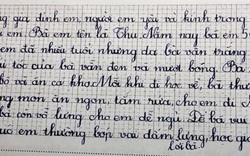 ng gia đình em, người em yêu và kính trong
em. Bà em tên là Thu Năm nay bà em 5
em đã nhiều tuổi nhưng da bà vẫn trắng
tóc của bà vẫn đen và mượt bóng. Bà
bò và ăn cá kho. Mỗi khi đi học về, bà thường
g món ăn ngon, tắm rửa, cho em đi
bà còn vỗ lưng cho em dễ ngủ. Để bà vui
em thường bóp vai đấm lưng, học gi
lời bà.